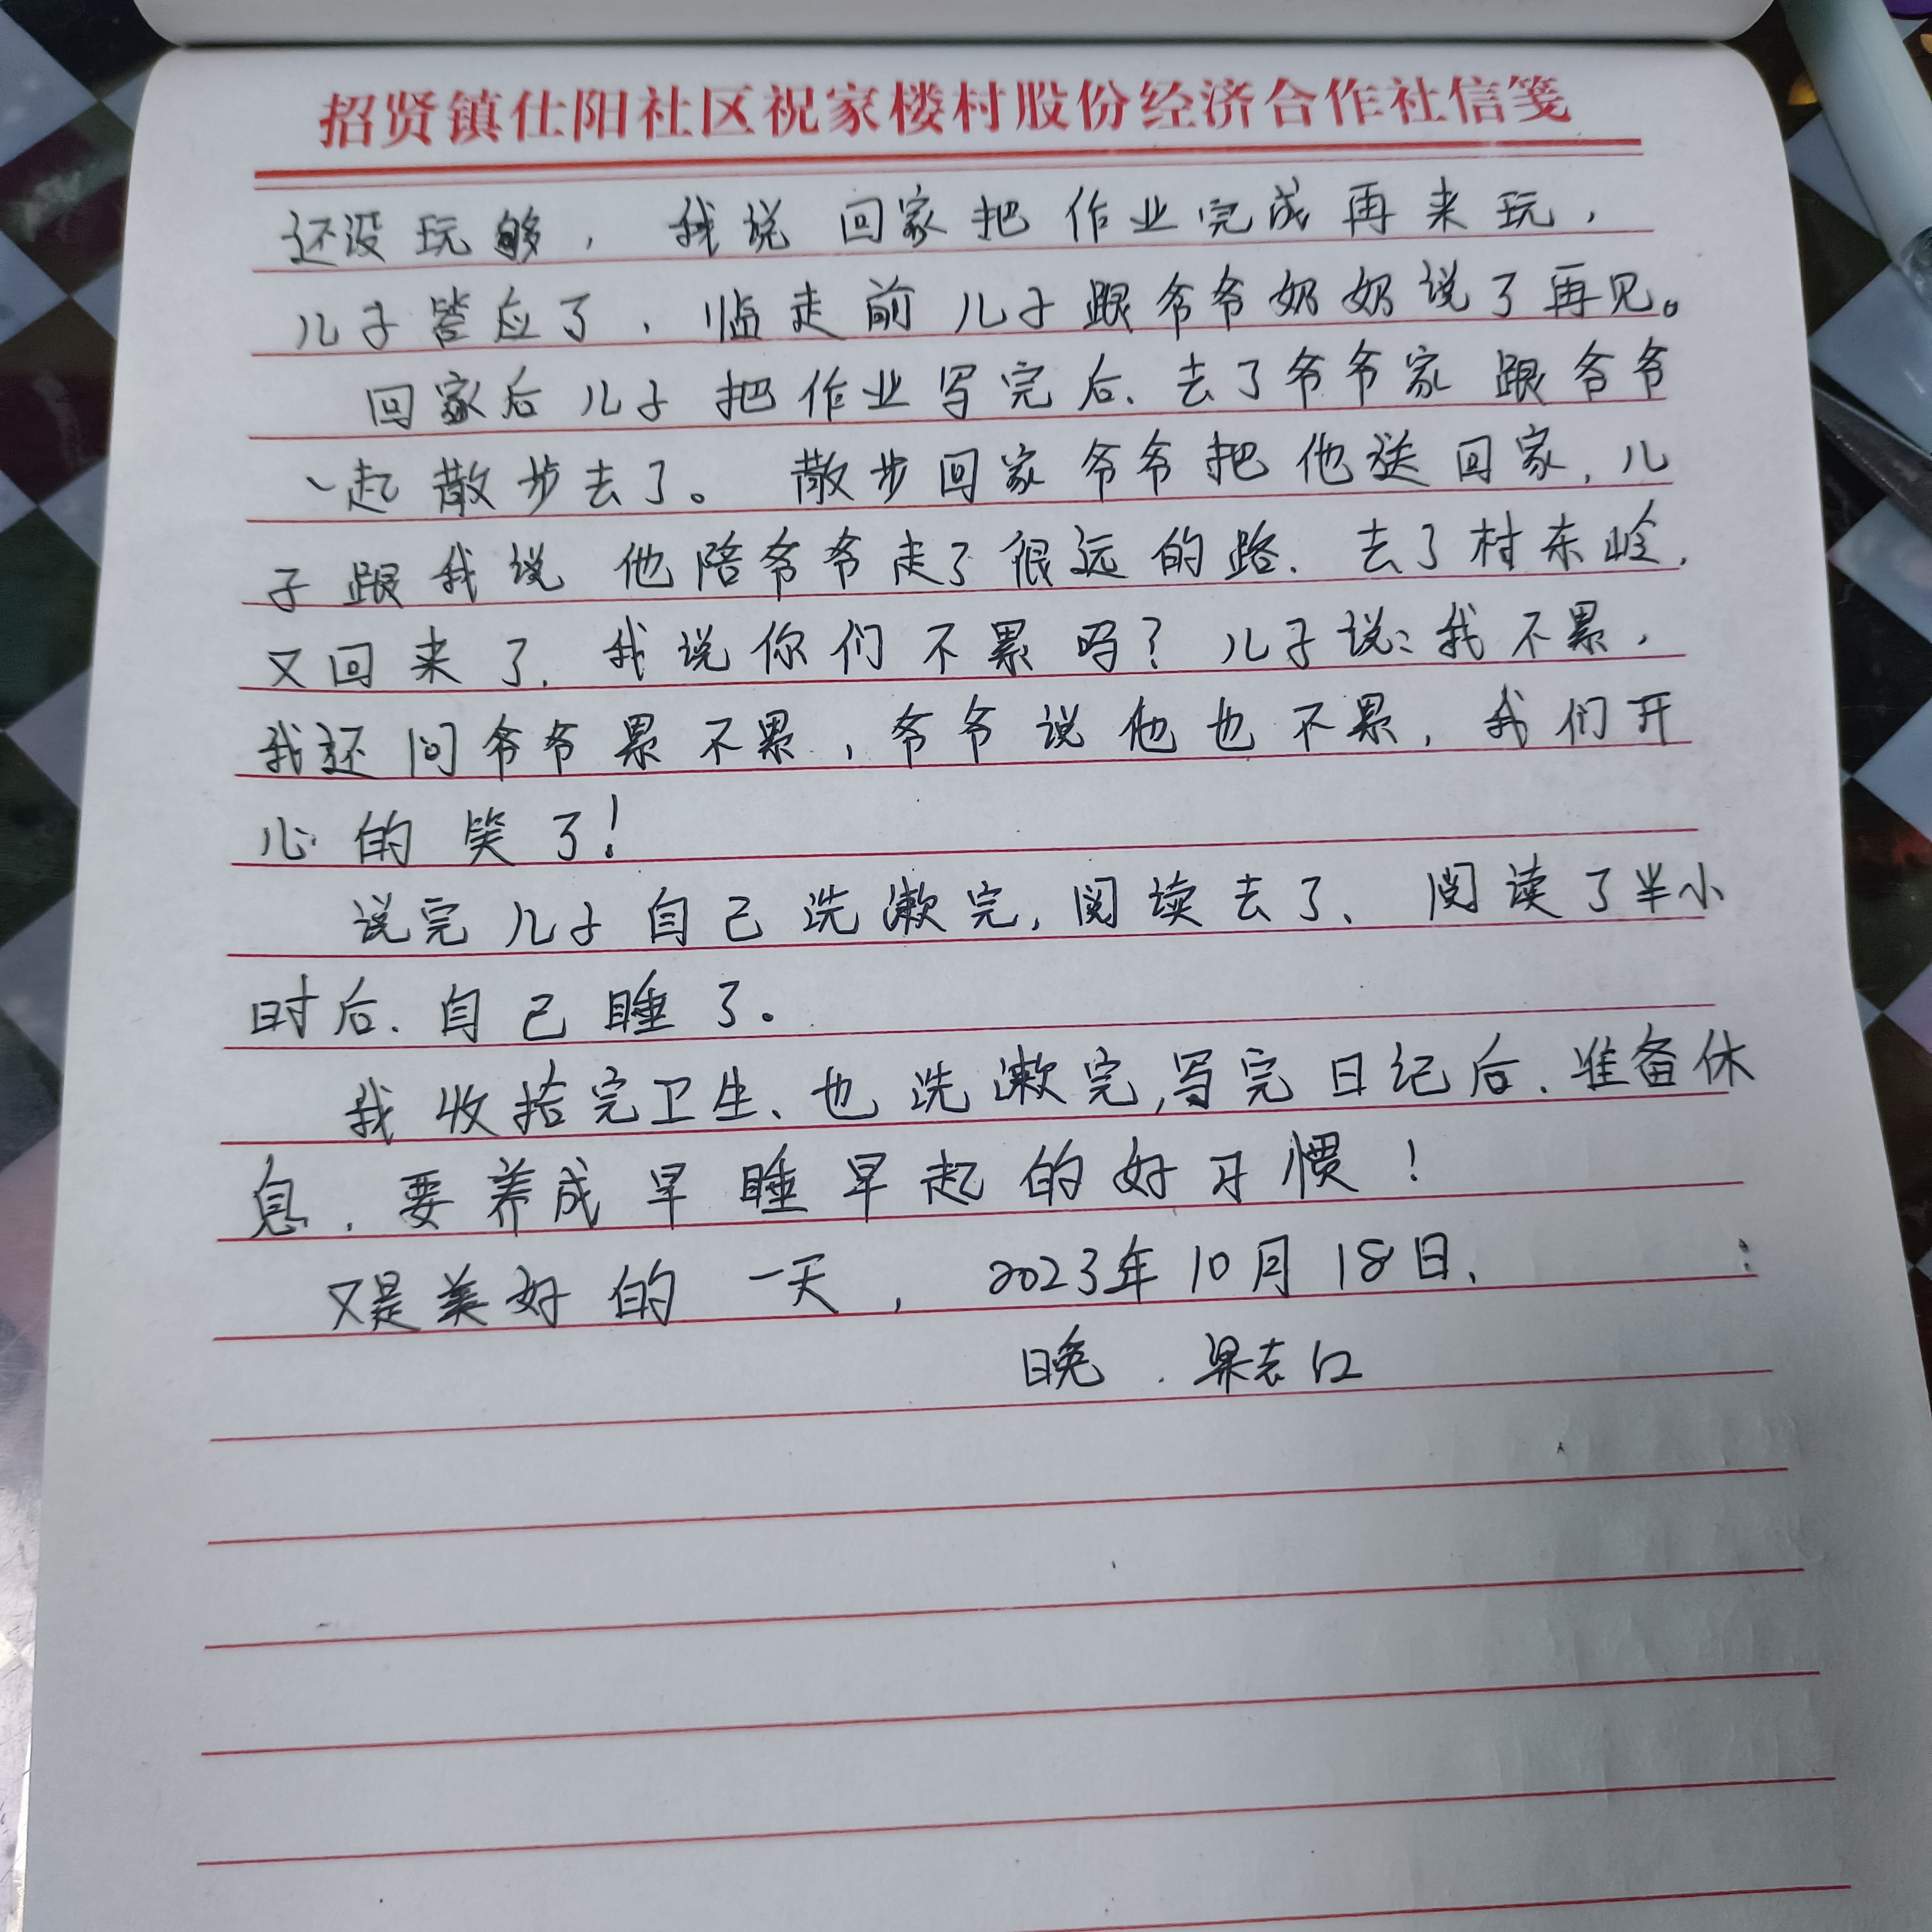 招贤镇仕阳社区祝家楼村股份经济合作社信笺
还没玩够，我说回家把作业完成再来玩，
儿子答应了，临走前儿子跟爷爷奶奶说了再见。
回家后儿子把作业写完后、去了爷爷家跟爷爷
一起散步去了。散步回家爷爷把他送回家，儿
子跟我说他陪爷爷走了很远的路、去了村东岭，
又回来了，我说你们不累吗？儿子说：我不累，
我还问爷爷累不累，爷爷说他也不累，我们开
心的笑了！
说完儿子自己洗漱完，阅读去了、阅读了半小
时后、自己睡了。
我收拾完卫生、也洗漱完，写完日记后、准备休
息，要养成早睡早起的好习惯！
又是美好的一天，2023年10月18日、
晚．梁志红